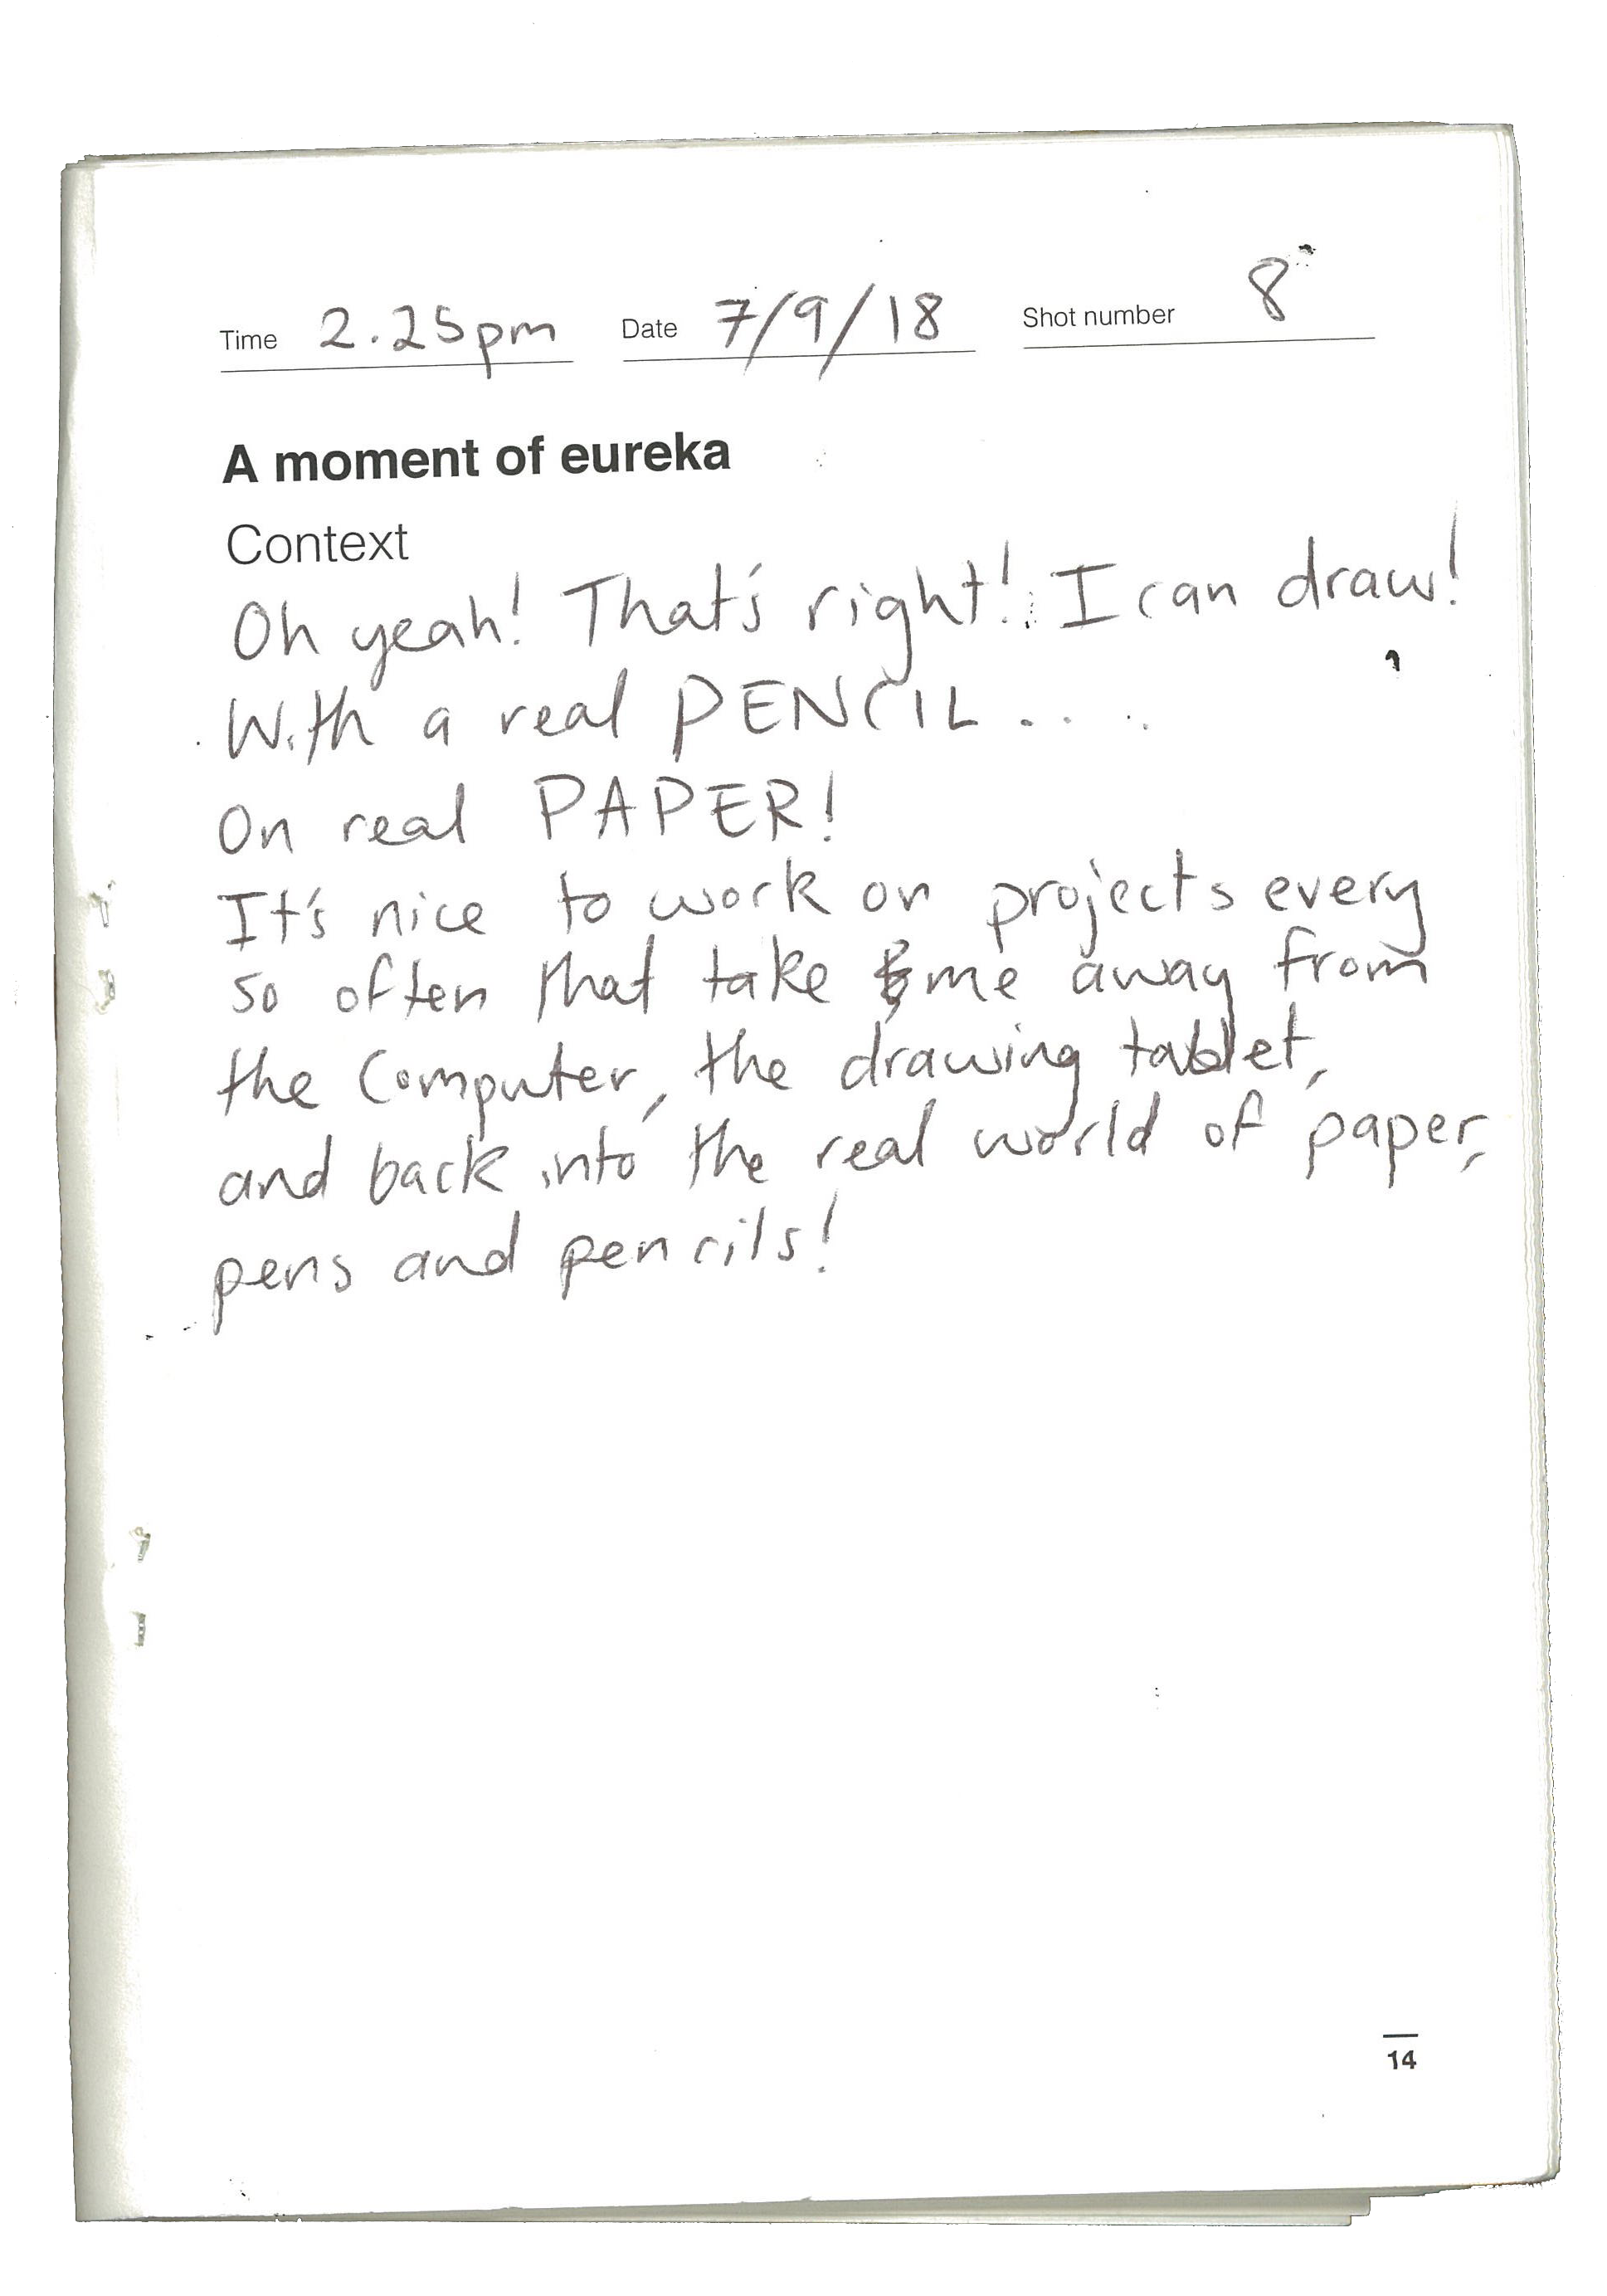 Time 2.25pm Date 7/9/18 Shot number 8
A moment of eureka
Context
Oh yeah! That's right! I can draw!
With a real PENCIL....
On real PAPER!
It's nice to work on projects every
so often that take me away from
the Computer, the drawing tablet,
and back into the real world of paper,
pens and pencils!
14